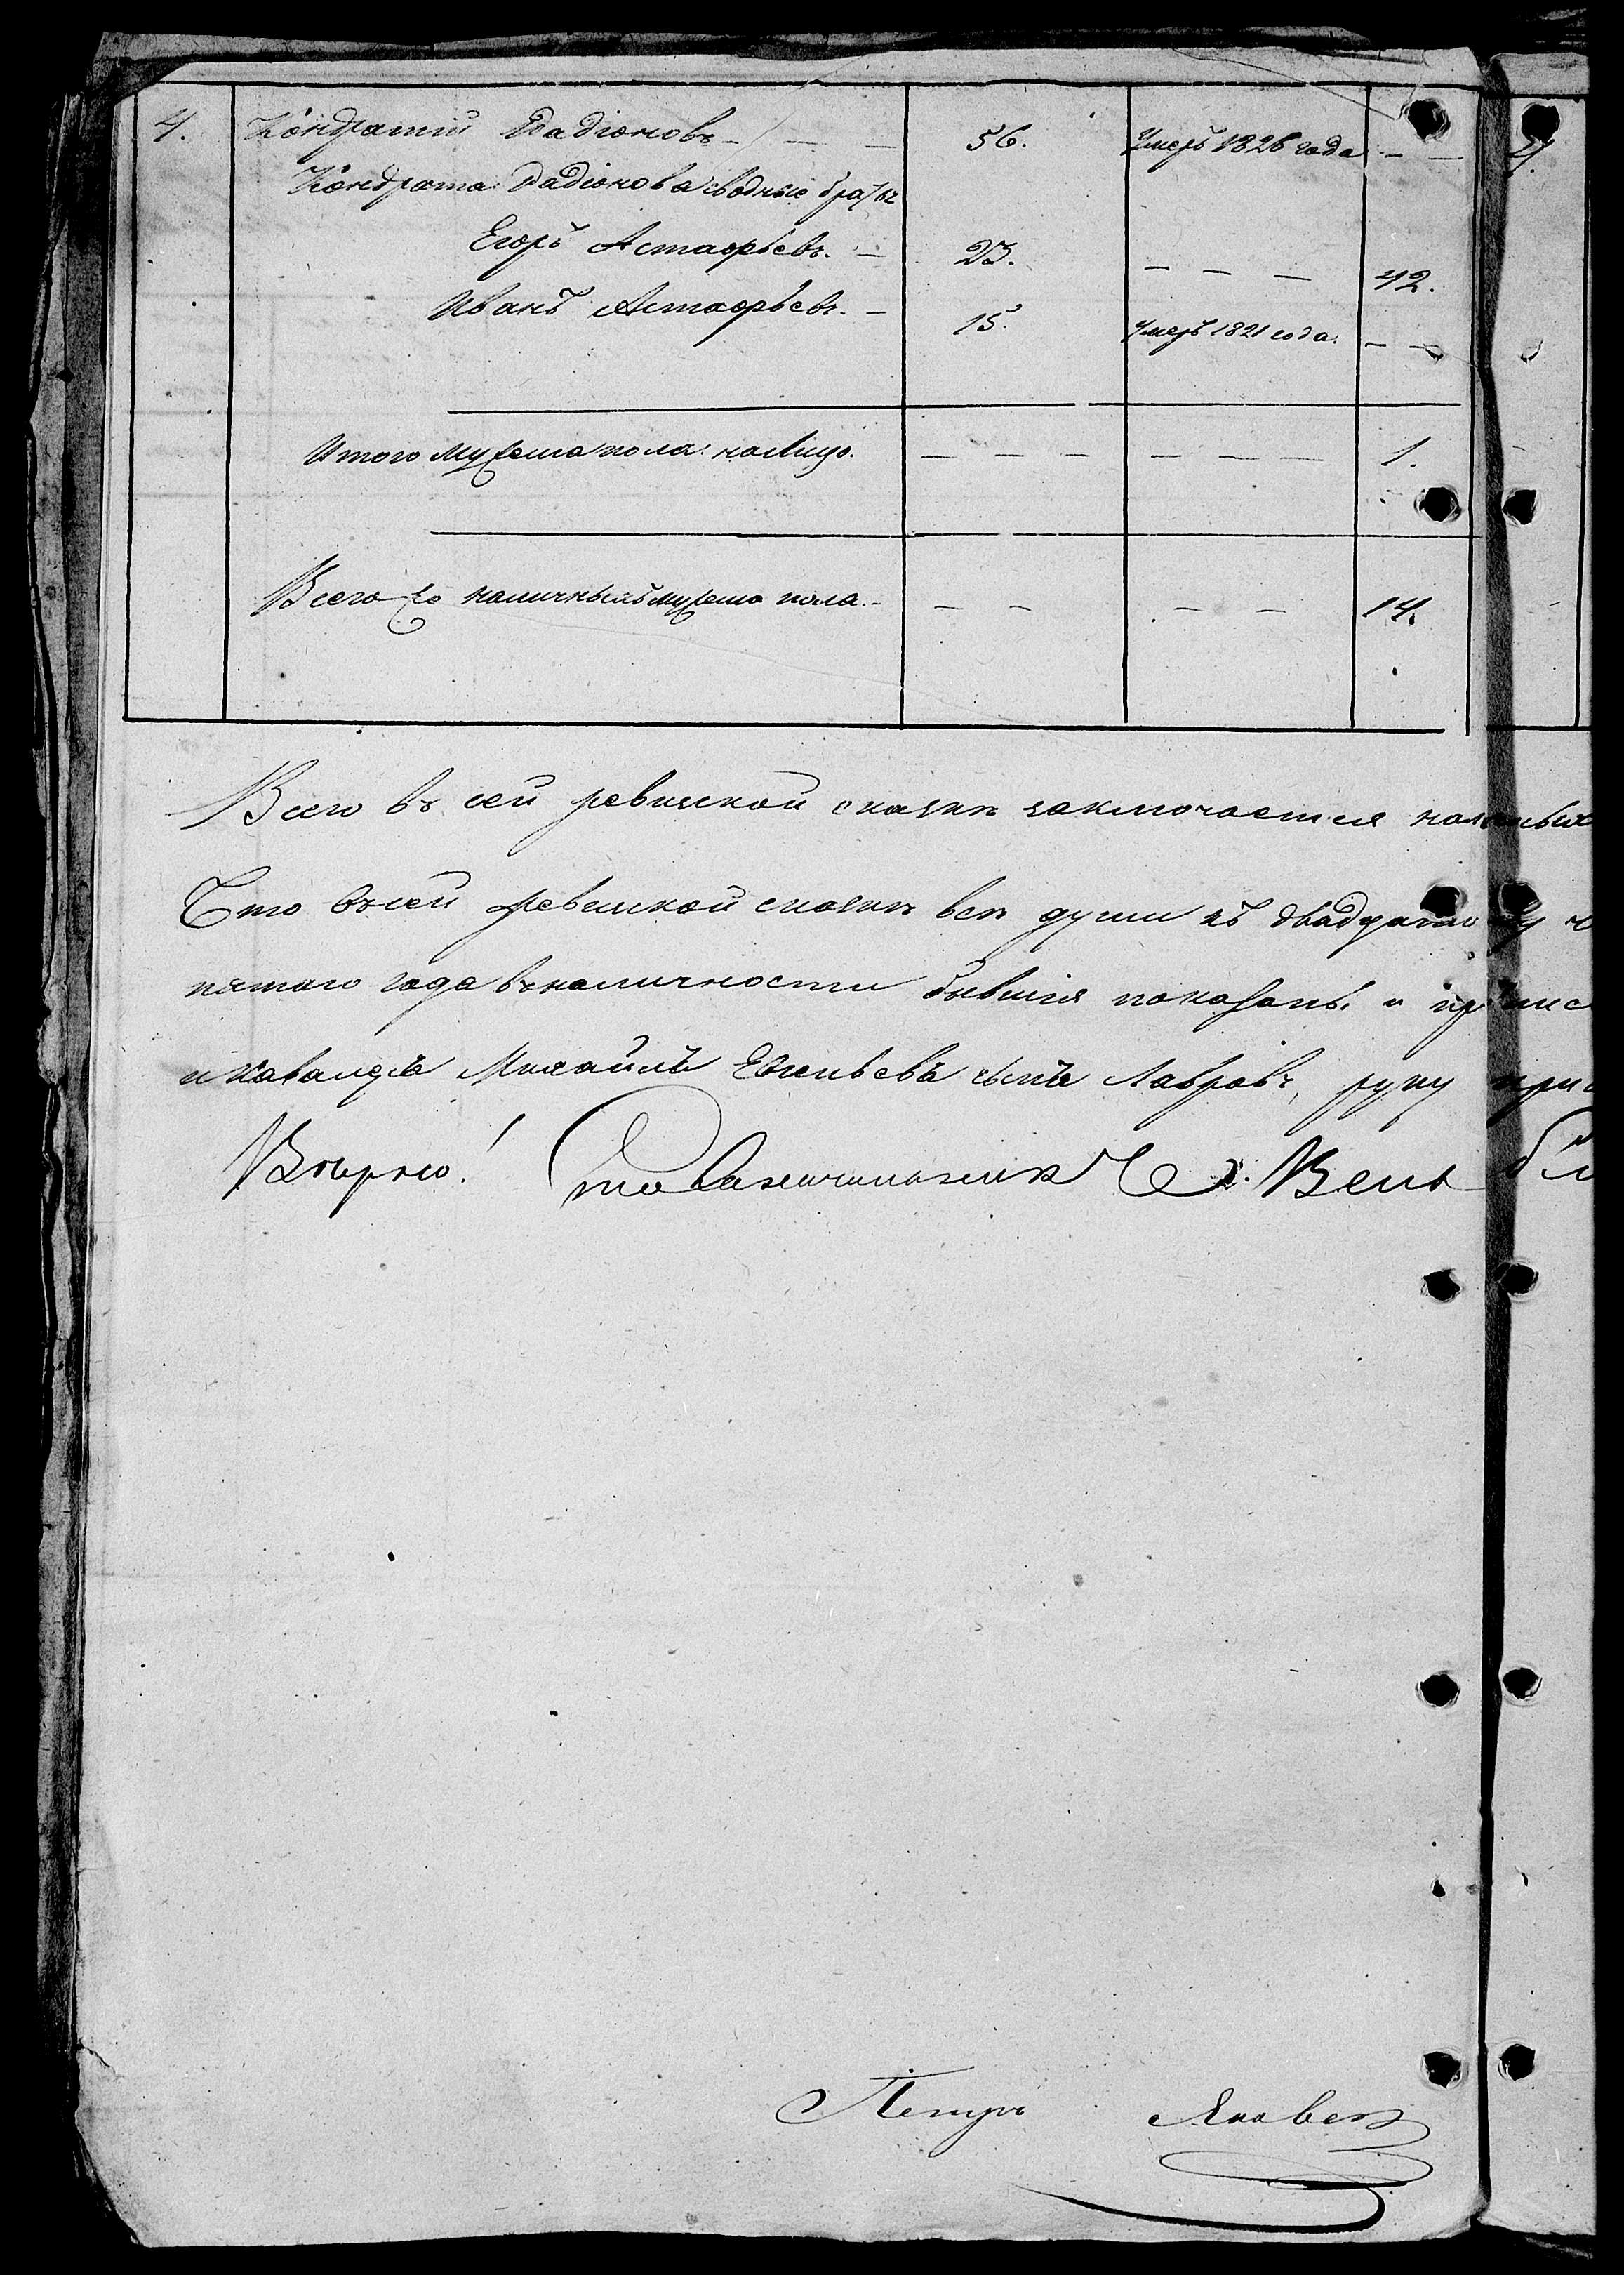 4. Кондратий Радіоновъ — — — 56. Умеръ 1826 года — — 4
Кондрата Радіонова сводные братья
Егоръ Астафьевъ. — 23. — — — 42.
Иванъ Астафьевъ. — 15. Умеръ 1821 года. — —
Итого мужеска пола на лицо. — — — — — — 1.
Всего же наличныхъ мужеска пола. — — — — — 14.
Всего въ сей ревиской сказкѣ заключается
Что въ сей ревиской сказкѣ всѣ души къ
пятаго года въ наличности бывшія показаны и
и Кавалеръ Михайлъ сынъ Лавровъ, руку
Вѣрно!
Петръ Яковлев